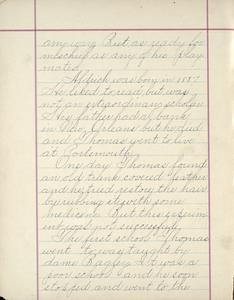 any way. But as ready for
mischief as any of his play
mates.
Aldrich was born in 1837
He liked to read but was
not an extraordinary scholar
His father had a bank
in New Orleans but he died
and Thomas went to live
at Portsmouth.
One day Thomas found
an old trunk covered leather
and he tried restory the hair
by rubbing it with some
medicine. But this experim
ent was not successful.
The first school Thomas
went to was taught by
dame Bagley. It was a
poor school and he soon
stopped and went to the